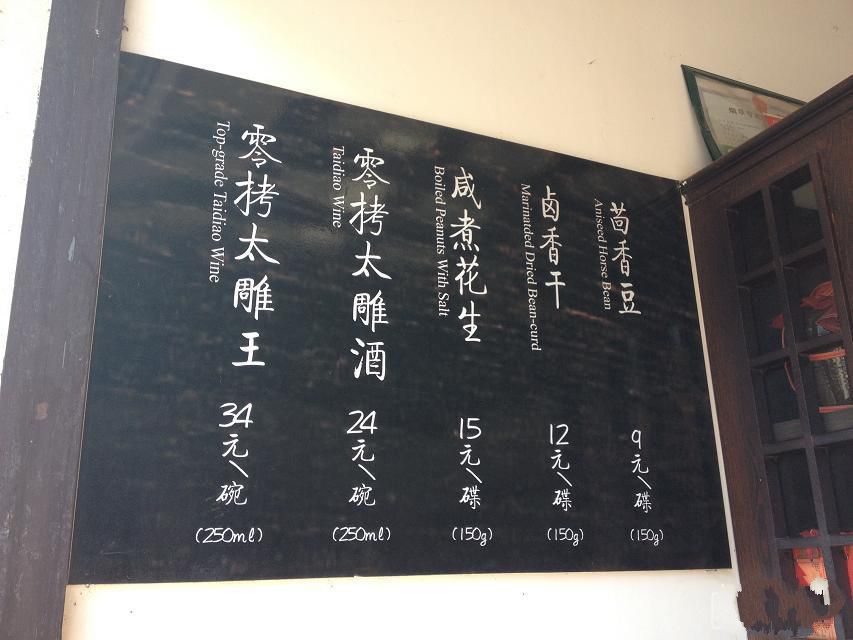 茴香豆
Aniseed Horse Bean
9元/碟
(150g)
卤香干
Marinatded Dried Bean-curd
12元/碟
(150g)
咸煮花生
Boiled Peanuts With Salt
15元/碟
(150g)
零拷太雕酒
Taidiao Wine
24元/碗
(250ml)
零拷太雕王
Top-grade Taidiao Wine
34元/碗
(250ml)